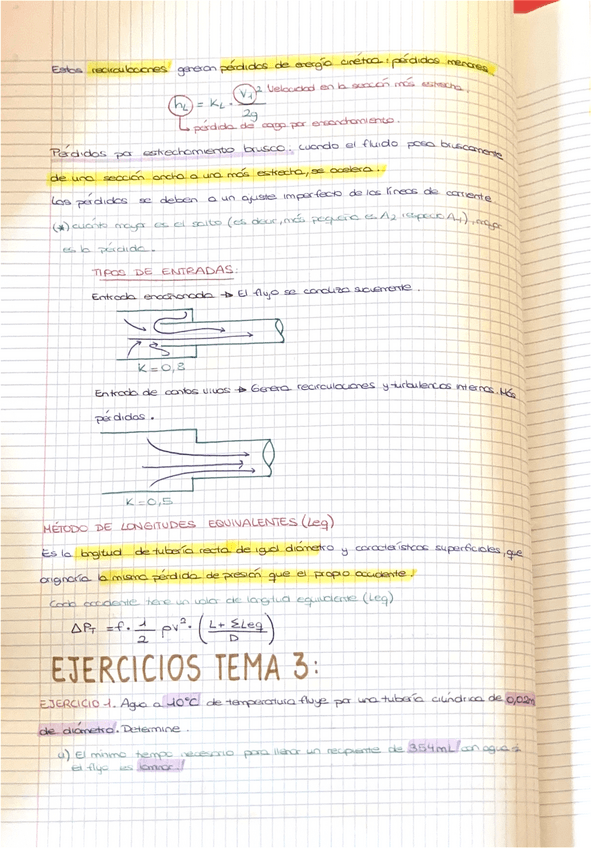 Estas recirculaciones generan pérdidas de energía cinética: pérdidas menores
hL = KL · V1² / 2g Velocidad en la sección más estrecha.
pérdida de carga por ensanchamiento.
Pérdidas por estrechamiento brusco: cuando el fluido pasa bruscamente
de una sección ancha a una más estrecha, se acelera.
Las pérdidas se deben a un ajuste imperfecto de las líneas de corriente
(*) cuánto mayor es el salto (es decir, más pequeña es A2 respecto A1), mayor
es la pérdida.
TIPOS DE ENTRADAS:
Entrada → El flujo se canaliza suavemente.
K = 0,8
Entrada de cantos vivos → Genera recirculaciones y turbulencias internas. Más
pérdidas.
K = 0,5
MÉTODO DE LONGITUDES EQUIVALENTES (Leq)
Es la longitud de tubería recta de igual diámetro y características superficiales, que
originaría la misma pérdida de presión que el propio accidente.
Cada accidente tiene un valor de longitud equivalente (Leq)
ΔPT = f · 1/2 ρv² · (L + ΣLeq / D)
EJERCICIOS TEMA 3:
EJERCICIO 1. Agua a 10°C de temperatura fluye por una tubería cilíndrica de 0,02m
de diámetro. Determine.
a) El mínimo tiempo necesario para llenar un recipiente de 354mL con agua si
el flujo es laminar.